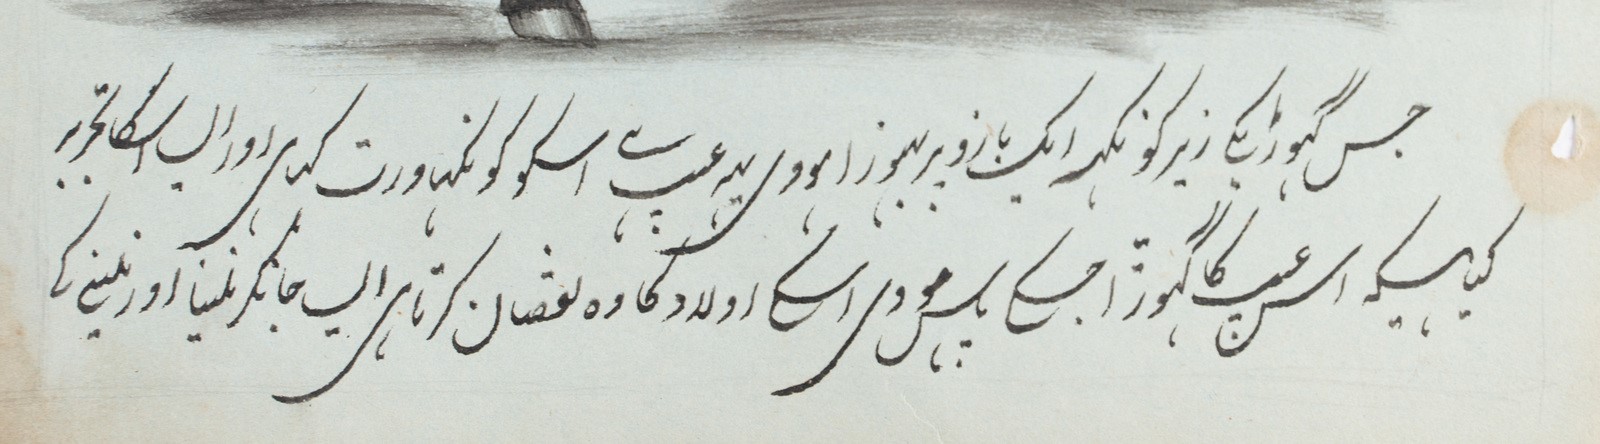 جس گہوڑیکے زیر کونکہہ ایک بازو پر بہنوزا ہووی یہہ عیب ہے اسکو کونکہاورت کہی اور ایسا اسکا تجربہ
کیا ہیکہ اس عیب کا گہوڑا جسکے پاس ہووی اسکے اولاد کا وہ نقصان کرتا ہی ایسا جانکر نلینا اور نلینے کے